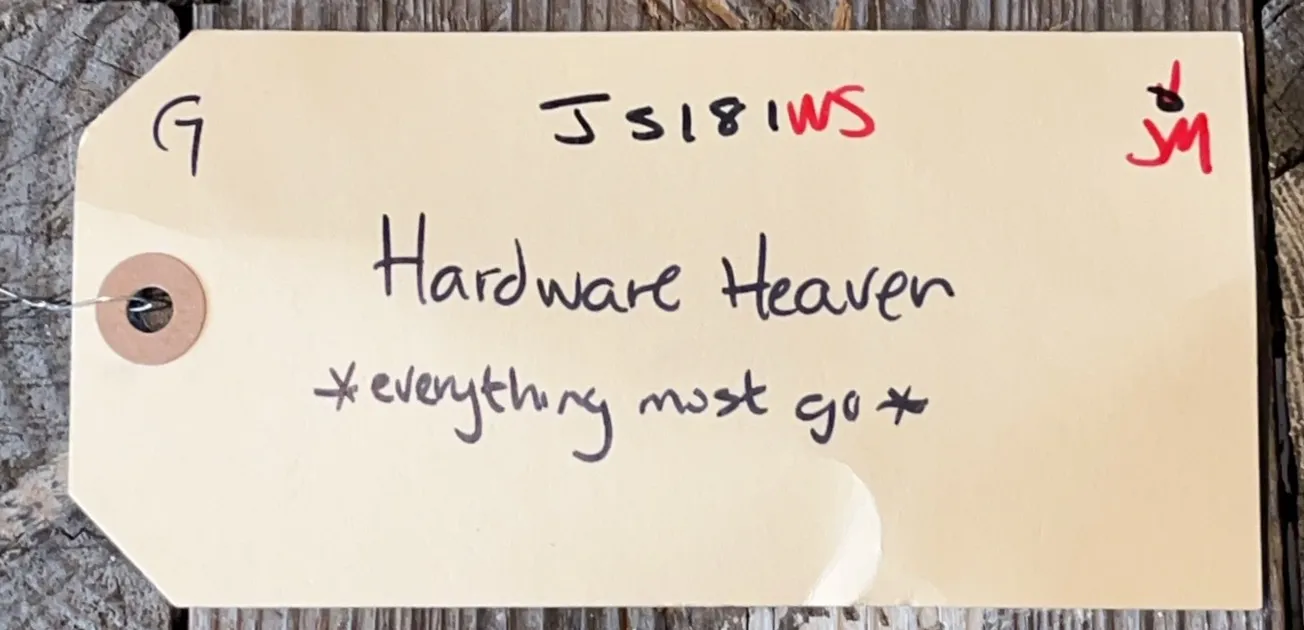 G JS181WS
JM
Hardware Heaven
*everything most go*